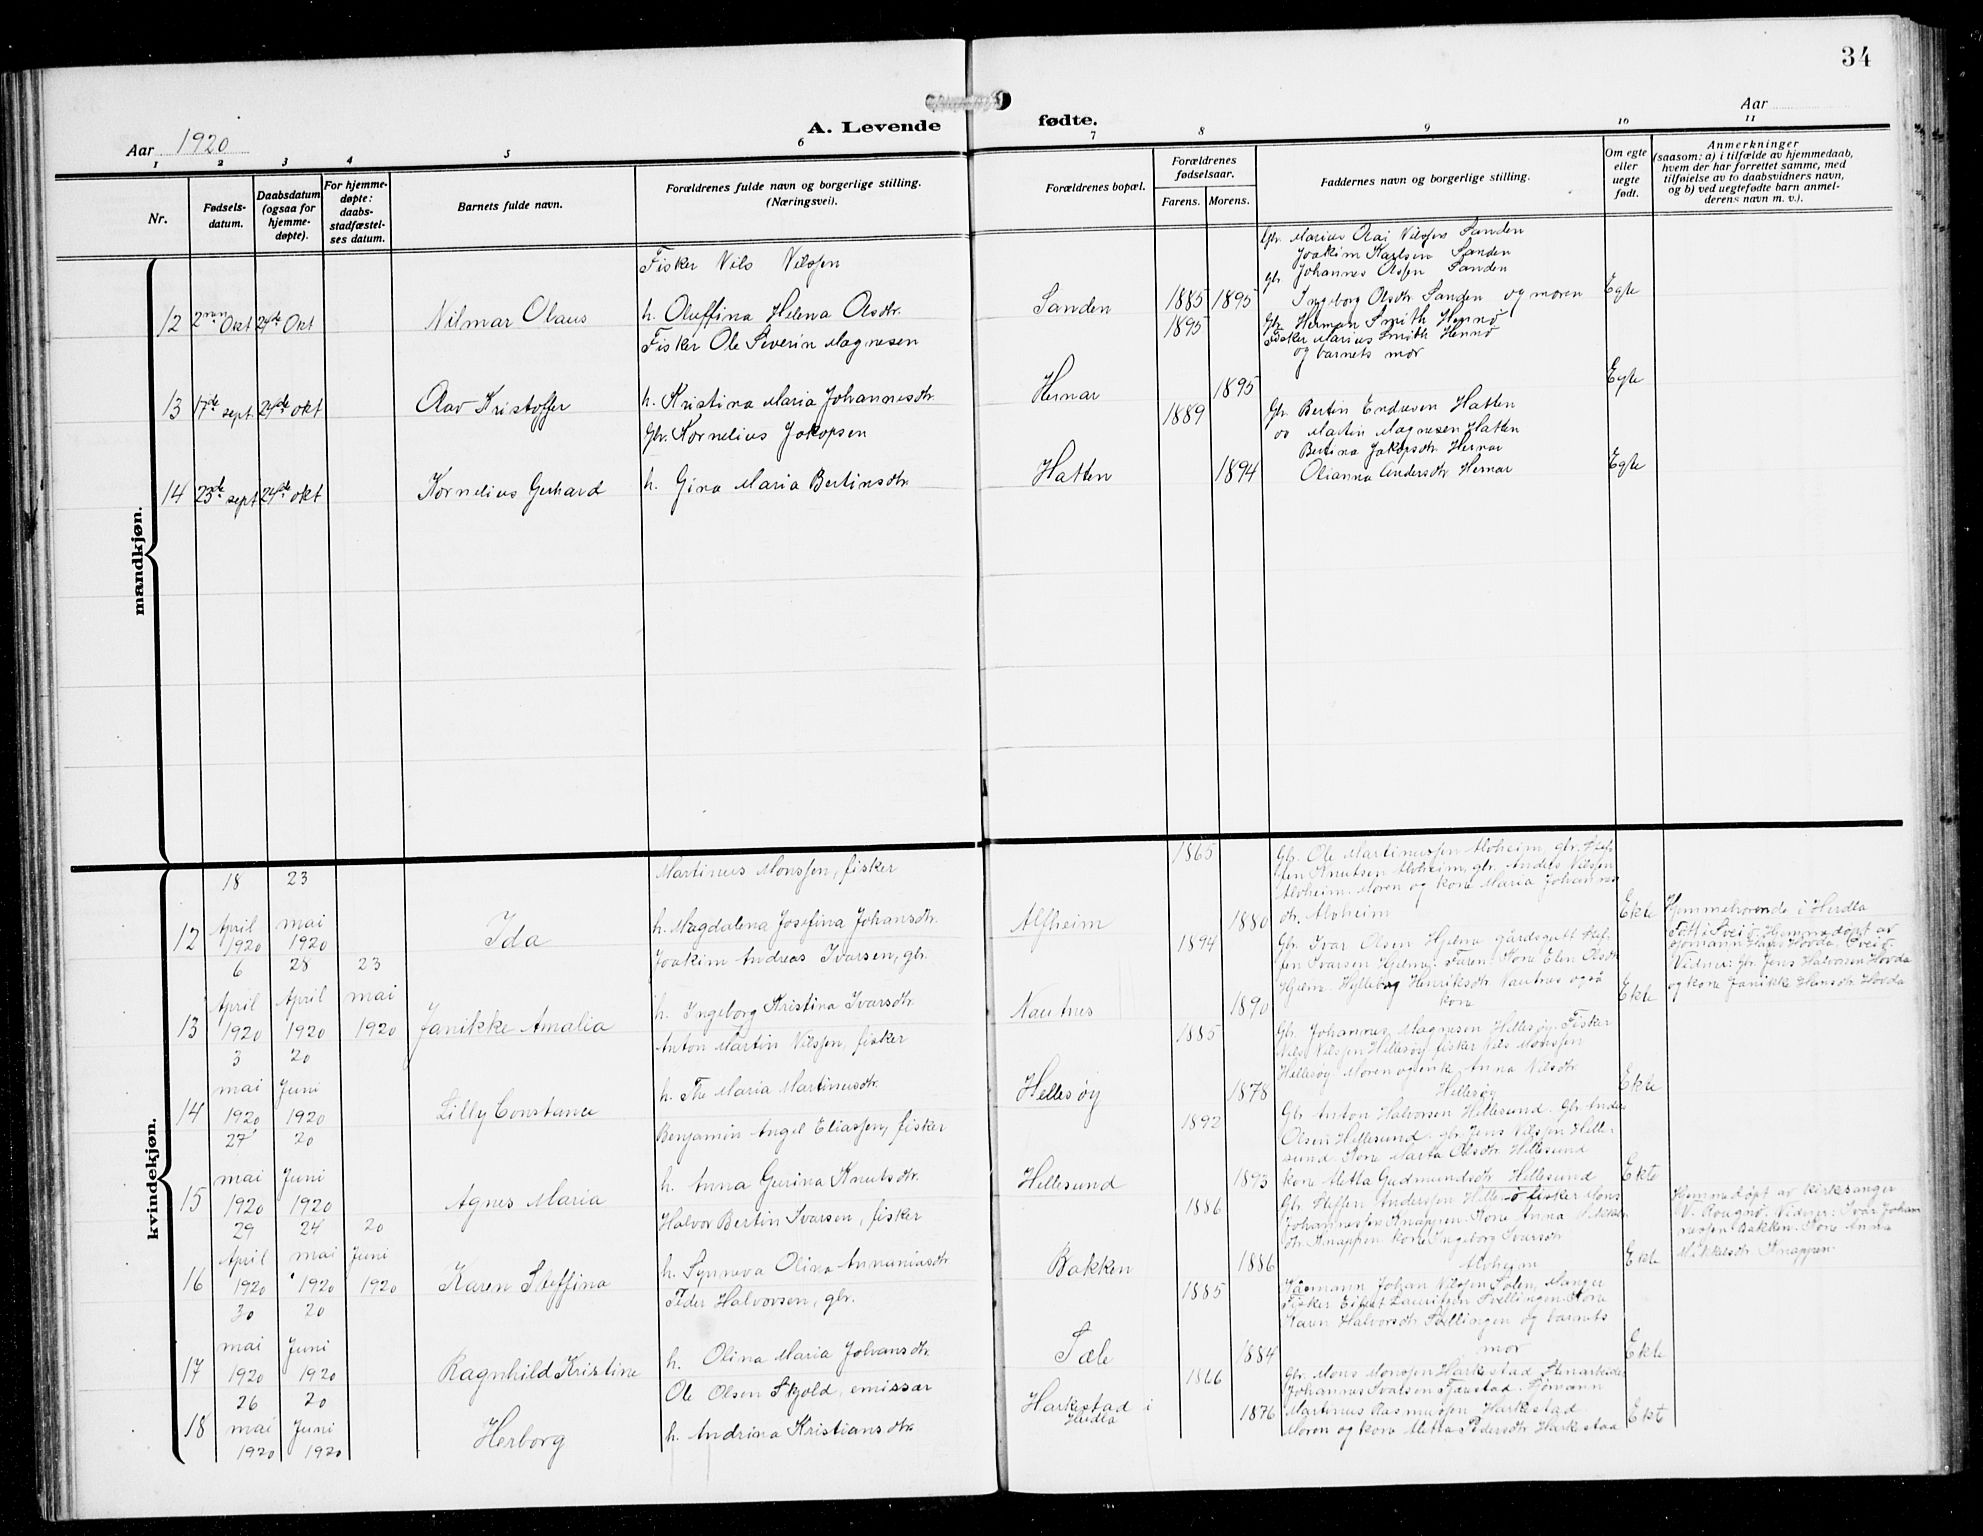 34
Aar 1920
A. Levende fødte.
Aar
1 2 3 4 5 6 7 8 9 10 11
Nr.
Fødsels-
datum.
Daabsdatum
(ogsaa for
hjemme-
døpte).
For hjemme-
døpte:
daabs-
stadfæstel-
ses datum.
Barnets fulde navn.
Forældrenes fulde navn og borgerlige stilling.
(Næringsvei).
Forældrenes bopæl.
Forældrenes
fødselsaar.
Farens. Morens.
Faddernes navn og borgerlige stilling.
Om egte
eller
uegte
født.
Anmerkninger
(saasom: a) i tilfælde av hjemmedaab,
hvem der har forrettet samme, med
tilføielse av to daabsvidners navn,
og b) ved uegtefødte barn anmel-
derens navn m. v.).
mandkjøn.
12 2nen Okt 24de Okt
Nilmar Olaus
Fisker Nils Nilssen
h. Oluffina Helena Olsdtr.
Sanden
1885 1895
Gbr. Marius Olai Nilssen Sanden
Joakim Karlsen Sanden
Gbr. Johannes Olssen Sanden
Ingeborg Olsdtr Sanden og moren
Egte
13 17de sept. 24de okt
Aav Kristoffer
Fisker Ole Severin Magnesen
h. Kristina Maria Johannesdtr
Hernar
1895
1895
Gbr Herman Smith Hennø
Fisker Marius Smith Hennø
og barnets mor
Egte
14 23de sept 24de okt
Kornelius Gerhard
Gbr. Kornelius Jakopsen
h. Gina Maria Bertinsdtr
Hatten
1889
1894
Gbr. Bertin Endresen Hatten
og Martin Magnesen Hatten
Bertina Jakopsdtr Hernar
Olianna Andersdtr Hernar
Egte
kvindekjøn.
12
18 April 1920
23 mai 1920
Ida
Martinus Monssen, fisker
h. Magdalena Josefina Johansdtr.
Alfheim
1865
1880
Gbr. Ole Martinussen Alvheim, gbr. Stef-
fen Knutsen Alvheim, gbr. Anders Nilssen
Alvheim. Moren og kone Maria Johannes
dtr. Alvheim
Ekte
13
6 April 1920
28 April 1920
23 mai 1920
Janikke Amalia
Joakim Andreas Ivarsen, gbr.
h. Ingeborg Kristina Ivarsdtr
Nautnes
1894
1890
Gbr. Ivar Olsen Hjelme gårdsgutt Stef-
fen Ivarsen Hjelme. Faren. Kone Elen Olsdtr
Hjelme. Hylleborg Henriksdtr Nautnes også
kone
Ekte
Hjemmehørende i Herdla
Født i Sveio. Hjemmedøpt av
sjømann Hans Hovda, Sveio.
Vidner: Gbr. Jens Halvorsen Hovda
og kone Janikke Hansdtr. Hovda
14
3 mai 1920
20 Juni 1920
Lilly Constanse
Anton Martin Nilssen, fisker
h. The Maria Martinusdtr.
Hellesøy
1885
1878
Gbr. Johannes Magnesen Hellesøy. Fisker
Nils Nilssen Hellesøy fisker Nils Monssen
Hellesøy Moren og enke Anna Nilsdtr
Hellesøy
Ekte
15
27 mai 1920
20 Juni 1920
Agnes Maria
Benjamin Angel Eliassen, fisker
h. Anna Gurina Knutsdtr.
Hellesund
1892
1893
Gbr Anton Halvorsen Hellesund. Gbr Anders
Olsen Hellesund. gbr Jens Nilssen Helle-
sund. Kone Marta Olsdtr. Hellesund
kone Metta Gudmundsdtr Hellesund
Ekte
16
29 April 1920
24 mai 1920
20 Juni 1920
Karen Steffina
Halvor Bertin Ivarsen, fisker
h. Synneva Olina Annaniasdtr
Bakken
1886
1886
Gbr. Steffen Anderssen Helle-ø fisker Mons
Johannessen Knappen. Kone Anna Mikkels
dtr. Knappen kone Ingeborg Ivarsdtr
Alvheim
Ekte
Hjemmedøpt av kirksanger
V. Rougnø. Vidner: Ivar Johan
nessen Bakken. Kone Anna
Mikkelsdtr Knappen.
17
30 mai 1920
20 Juni 1920
Ragnhild Kristine
Peder Halvorsen, gbr.
h. Olina Maria Johansdtr
Tæle
1885
1884
Johan Nilssen Solen, Manger
Fisker Lauritssen Svellingen Kone
Karen Halvorsdtr Svellingen og barnets
mor
Ekte
18
26 mai 1920
20 Juni 1920
Herborg
Ole Olsen Skjold, emissær
h. Andrina Kristiansdtr
Harkestad i
Herdla
1866
1876
Gbr. Mons Monssen Harkestad Stenarbeider
Johannes Ivarsen Tjæstad. Sjømann
Martinus Rasmussen Harkestad
Moren og kone Metta Pedersdtr Harkestad
Ekt